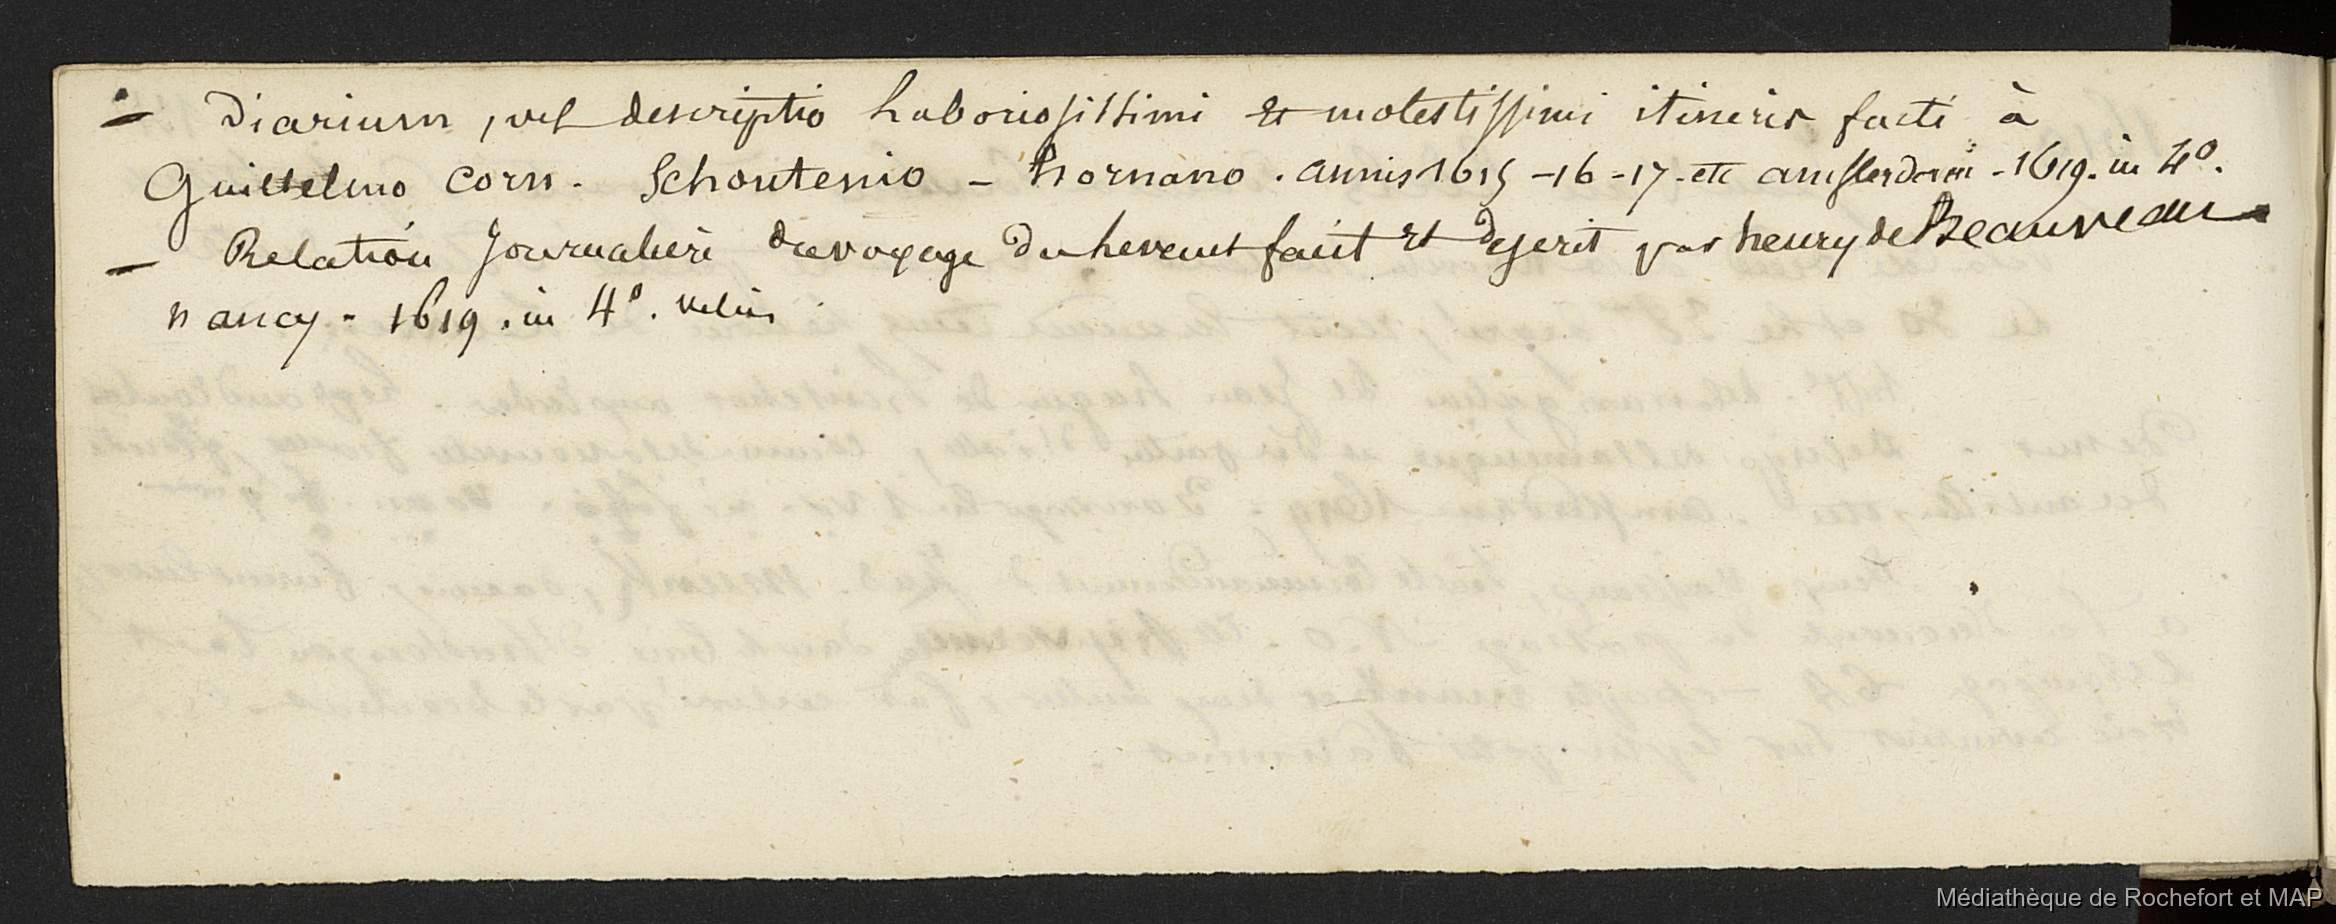 – Diarium, vel descriptio Laboriosissimi et molestissimi itineris facti à
Guillelmo Corn. Schoutenio – hornano. annis 1615 -16 -17- etc amsterdami - 1619. in 4°.
– Relation Journaliere du voyage du levant fait et descrit par henry de Beauveau
nancy - 1619. in 4°. velin
Médiathèque de Rochefort et MAP